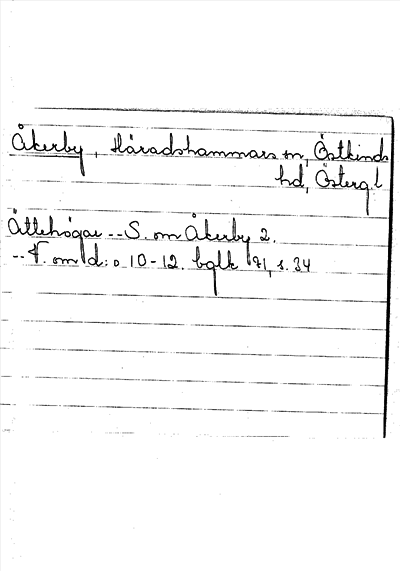 Åkerby, Häradshammars sn, Östkinds
hd, Östergl
Ättehögar -- S. om Åkerby 2.
-- V. om d:o 10-12. bglk 71, s. 34